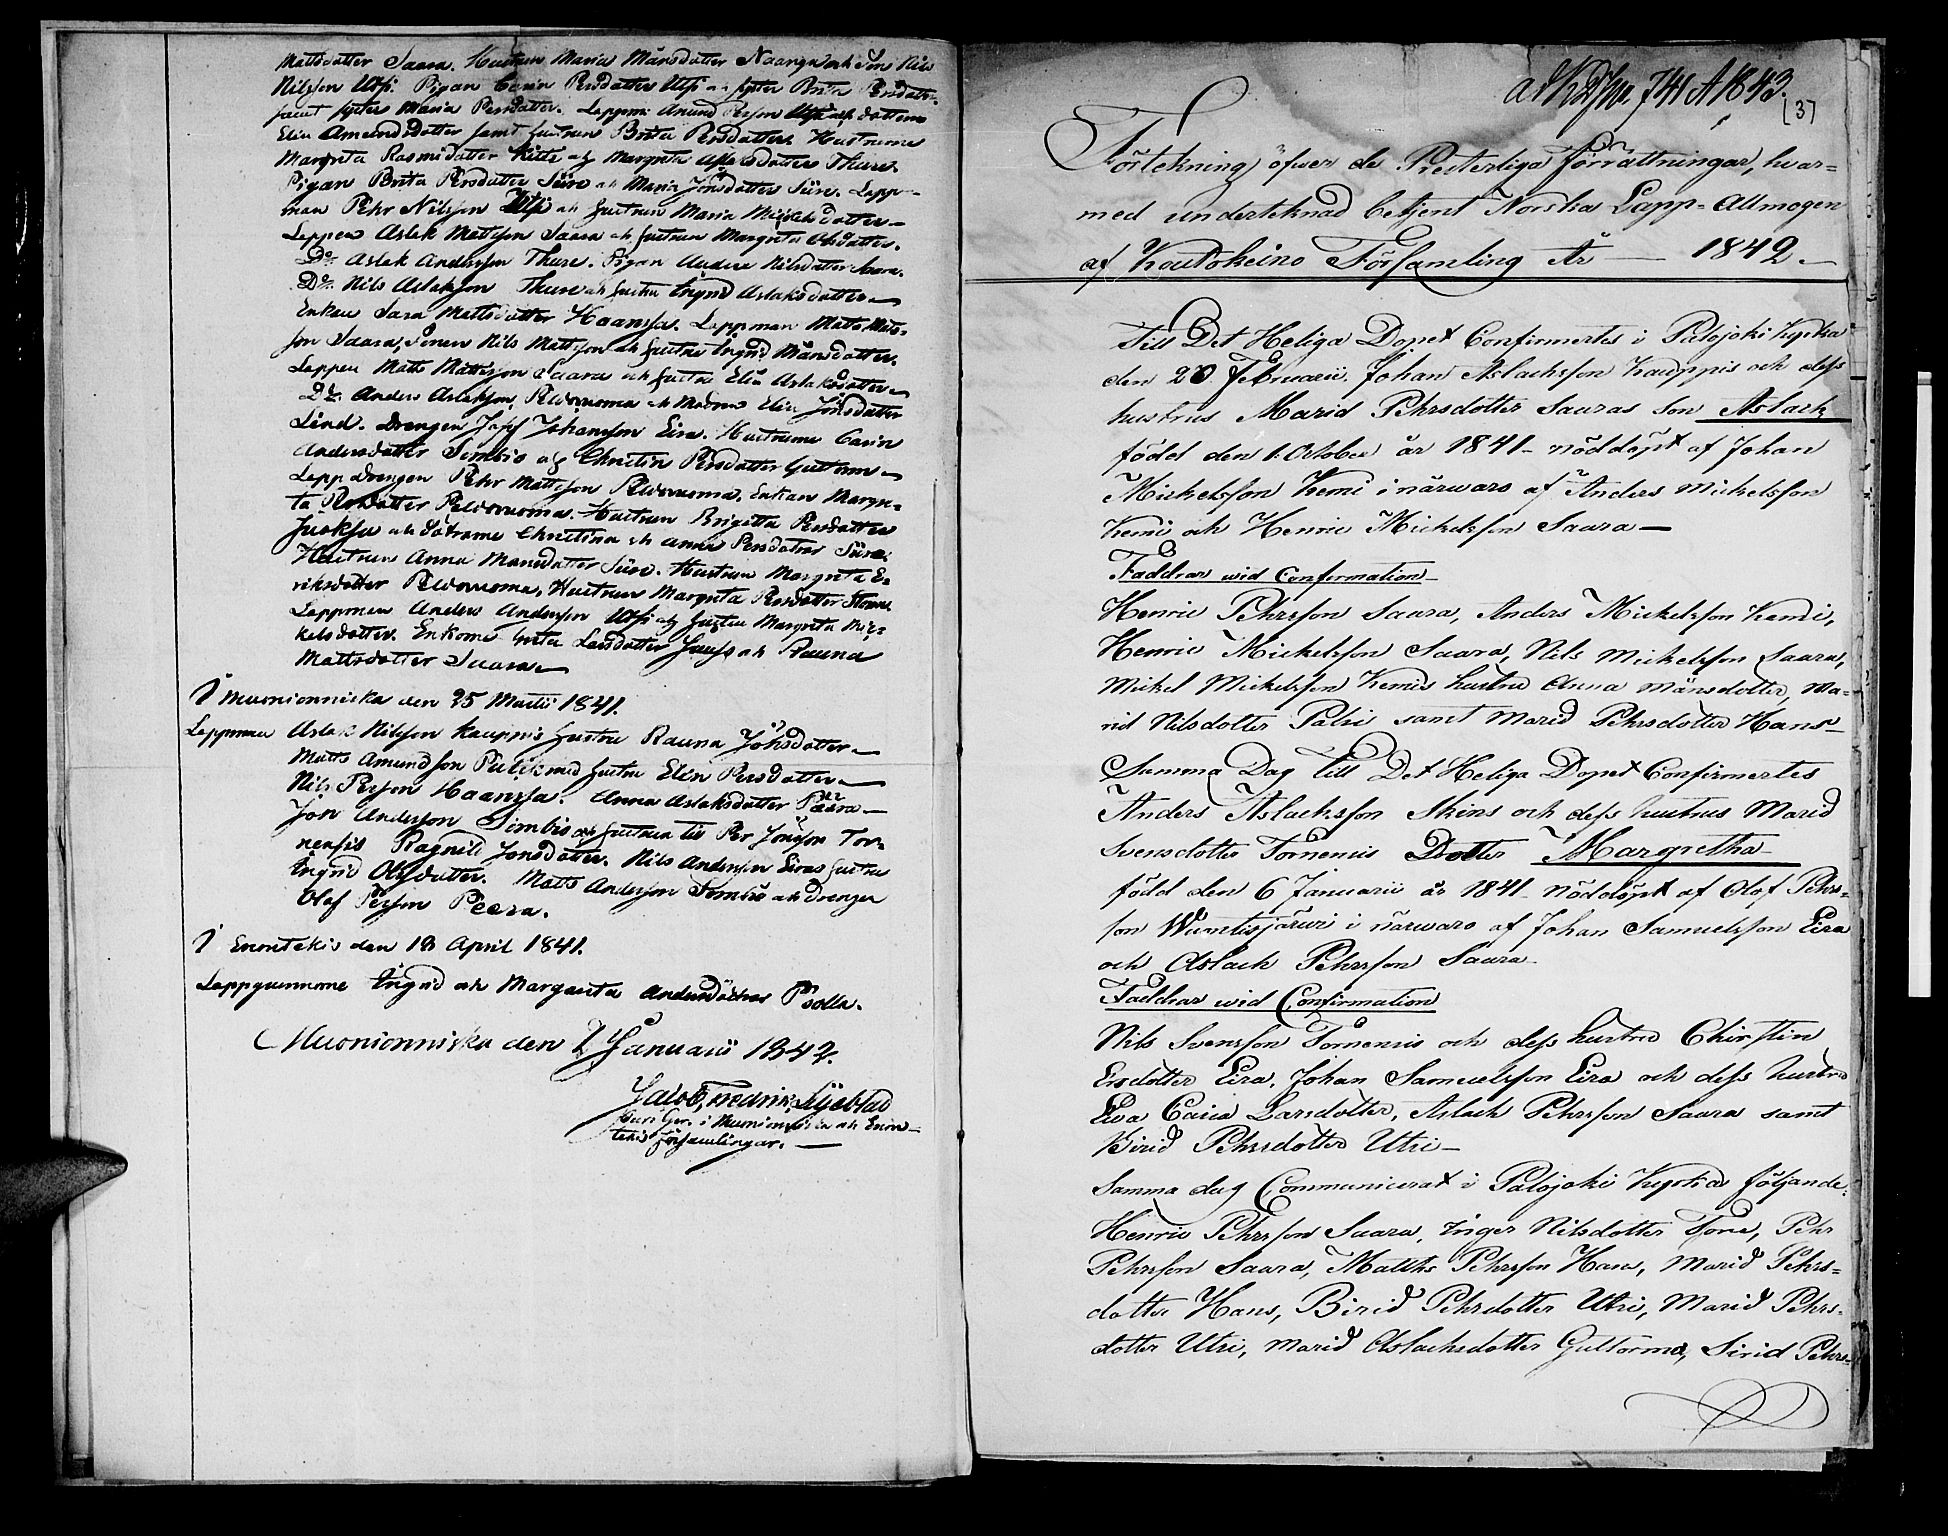 Mattsdotter Saara. Hustrun Maria Månsdotter Naanga och Son Nils
Nilsson Utsi. Pigan Carin Persdotter Utsi och syster Brita Persdotter
samt syster Maria Persdotter. Lappm: Amund Persson Utsi och dottern
Elin Amundsdotter samt hustrun Brita Persdotter. Hustrurne
Margreta Rasmusdotter Kitti och Margreta Aslaksdotter Thure.
Pigan Brita Persdotter Siire och Maria Jönsdotter Siire. Lapp-
man Pehr Nilsson Utsi och hustrun Maria Mickelsdotter
Lappen Aslak Mattsson Saara och hustrun Margreta Olsdotter.
Do Aslak Andersson Thure. Pigan Nilsdotter Saara.
Do Nils Aslaksson Thure och hustru Ingrid Aslaksdotter
Enkan Sara Mattsdotter Haansa. Lappman Matts Mats-
son Saara, Sonen Nils Mattsson och hustru Ingrid Månsdotter.
Lappen Matts Mattsson Saara och hustru Elin Aslaksdotter
Do Anders Aslaksson Peldovuoma och Modren Elin Jönsdotter
Lind. Drengen Josef Johansson Eira. Hustrurne Carin
Andersdotter Simbis och Christin Persdotter Guttorm
Lapp Drengen Pehr Mattsson Peldovuoma. Enkan Margre-
ta Persdotter Peldovuoma. Hustrun Brigitta Persdotter
Juoksa och Christina och Anna Persdotter Siire.
Hustrun Anna Mansdotter Siire. Hustrun Margreta E-
riksdotter Peldovuoma, Hustrun Margreta Persdotter
Lappman Anders Andersson Utsi och hustru Margreta Mic-
kelsdotter. Enkorne Greta Larsdotter och Rauna
Mattsdotter Saara
I Muonionniska den 25 Martii 1841.
Lappman Aslak Nilsson Kauppis hustru Rauna Jönsdotter
Matts Amundsson med hustru Elin Persdotter
Nils Persson Haansa. Anna Aslaksdotter Päära
Jon Andersson Simbis och hustrun till Per Jönsson Tor-
nensis Ragnill Jonsdotter. Nils Andersson Eiras hustru
Ingrid Olofsdotter. Matts Andersson Simbis och Drengen
Olof Persson Peera.
I Enontekis den 18 April 1841.
Lappqvinnorne Ingrid och Margareta Andersdöttrar Proska.
Muonionniska den 7 Januarii 1842.
Jacob Fredrik Liljeblad
i Muonionniska och Enon-
tekis församlingar.
ad No 741 A 1843.
[3]
Förtekning öfwer de Presterliga förrättningar, hwar-
med underteknad betjent Norska Lapp-Allmogen
af Koutokeino Församling År — 1842
Till Det Heliga Dopet Confirmertes i Palojoki Kyrka
den 20 Februarii. Johan Aslachsson Kauppis och dess
hustrus Marid Pehrsdotter Saaras Son Aslach
född den 1. October år 1841 nöddöpt af Johan
Mickelsson Kemi i närwaro af Anders Mickelsson
Kemi och Henric Mickelsson Saara
Faddrar wid Confirmation
Henric Pehrsson Saara, Anders Mickelsson Kemi,
Henric Mickelsson Saara, Nils Mickelsson Saara,
Mickel Mickelsson Kemis hustru Anna Månsdotter, Ma-
rid Nilsdotter Palri samt Marid Pehrsdotter Hans
Samma Dag Till Det Heliga Dopet Confirmertes
Anders Aslachsson Skins och dess hustrus Marid
Svensdotter Tornensis Dotter Margretha
född den 6 Januarii år 1841 nöddöpt af Olof Pehrs-
son Wuontisjärwi i närwaro af Johan Samuelsson Eira
och Aslach Pehrsson Saara
Faddrar wid Confirmation
Nils Svensson Tornensis och dess hustru Chirstin
Ersdotter Eira, Johan Samuelsson Eira och dess hustru
Eva Caisa Larsdotter, Aslach Pehrsson Saara samt
Birid Pehrsdotter Utsi
Samma dag Communicerat i Palojoki Kyrka följande.
Henric Pehrsson Saara, Inger Nilsdotter Tone, Pehr
Pehrsson Saara, Matths Pehrsson Hans, Marid Pehrs-
dotter Hans, Birid Pehrsdotter Utsi, Marid Pehrs-
dotter Utsi, Marid Aslachsdotter Guttorma, Sirid Pehrs-